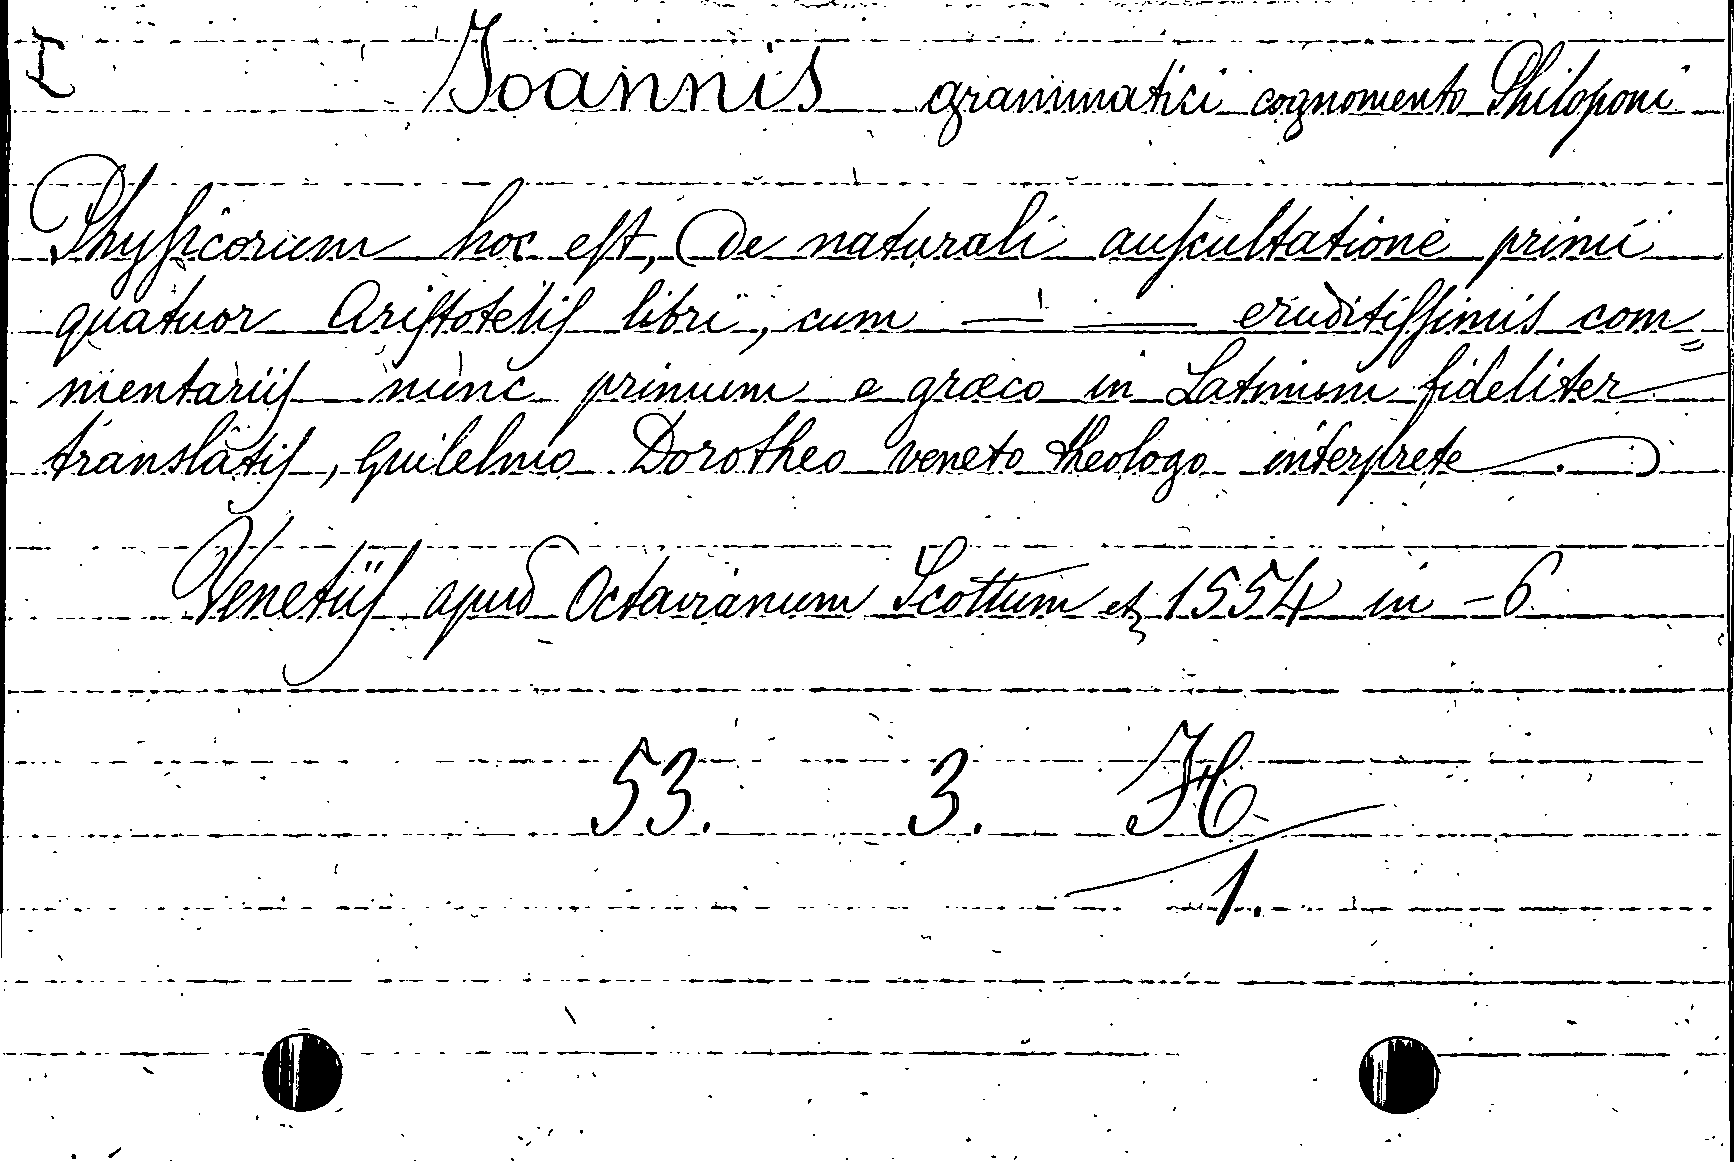 I
Joannis grammatici cognomento Philoponi
Phyſicorum hoc eſt, De naturali auſcultatione primi
quatuor Ariſtoteliſ libri, cum — — eruditiſſimis com=
mentariiſ nunc primum e græco in Latinum fideliter
translatiſ, Guilelmo Dorotheo veneto theologo interprete.
Venetiiſ apud Octavianum Scottum et 1554 in -6.
53. 3. H
1.